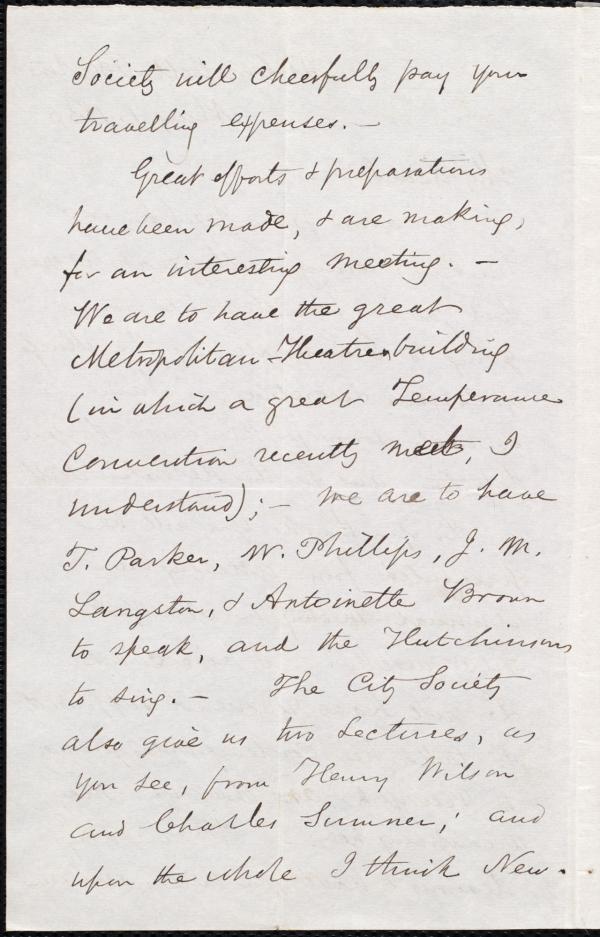 Society will cheerfully pay your
travelling expenses. —
Great efforts & preparations
have been made, & are making,
for an interesting meeting. —
We are to have the great
Metropolitan Theatre building
(in which a great Temperance
Convention recently met, I
understand); — we are to have
T. Parker, W. Phillips, J. M.
Langston, & Antoinette Brown
to speak, and the Hutchinsons
to sing. — The City Society
also give us two Lectures, as
you see, from Henry Wilson
and Charles Sumner; and
upon the whole I think New-